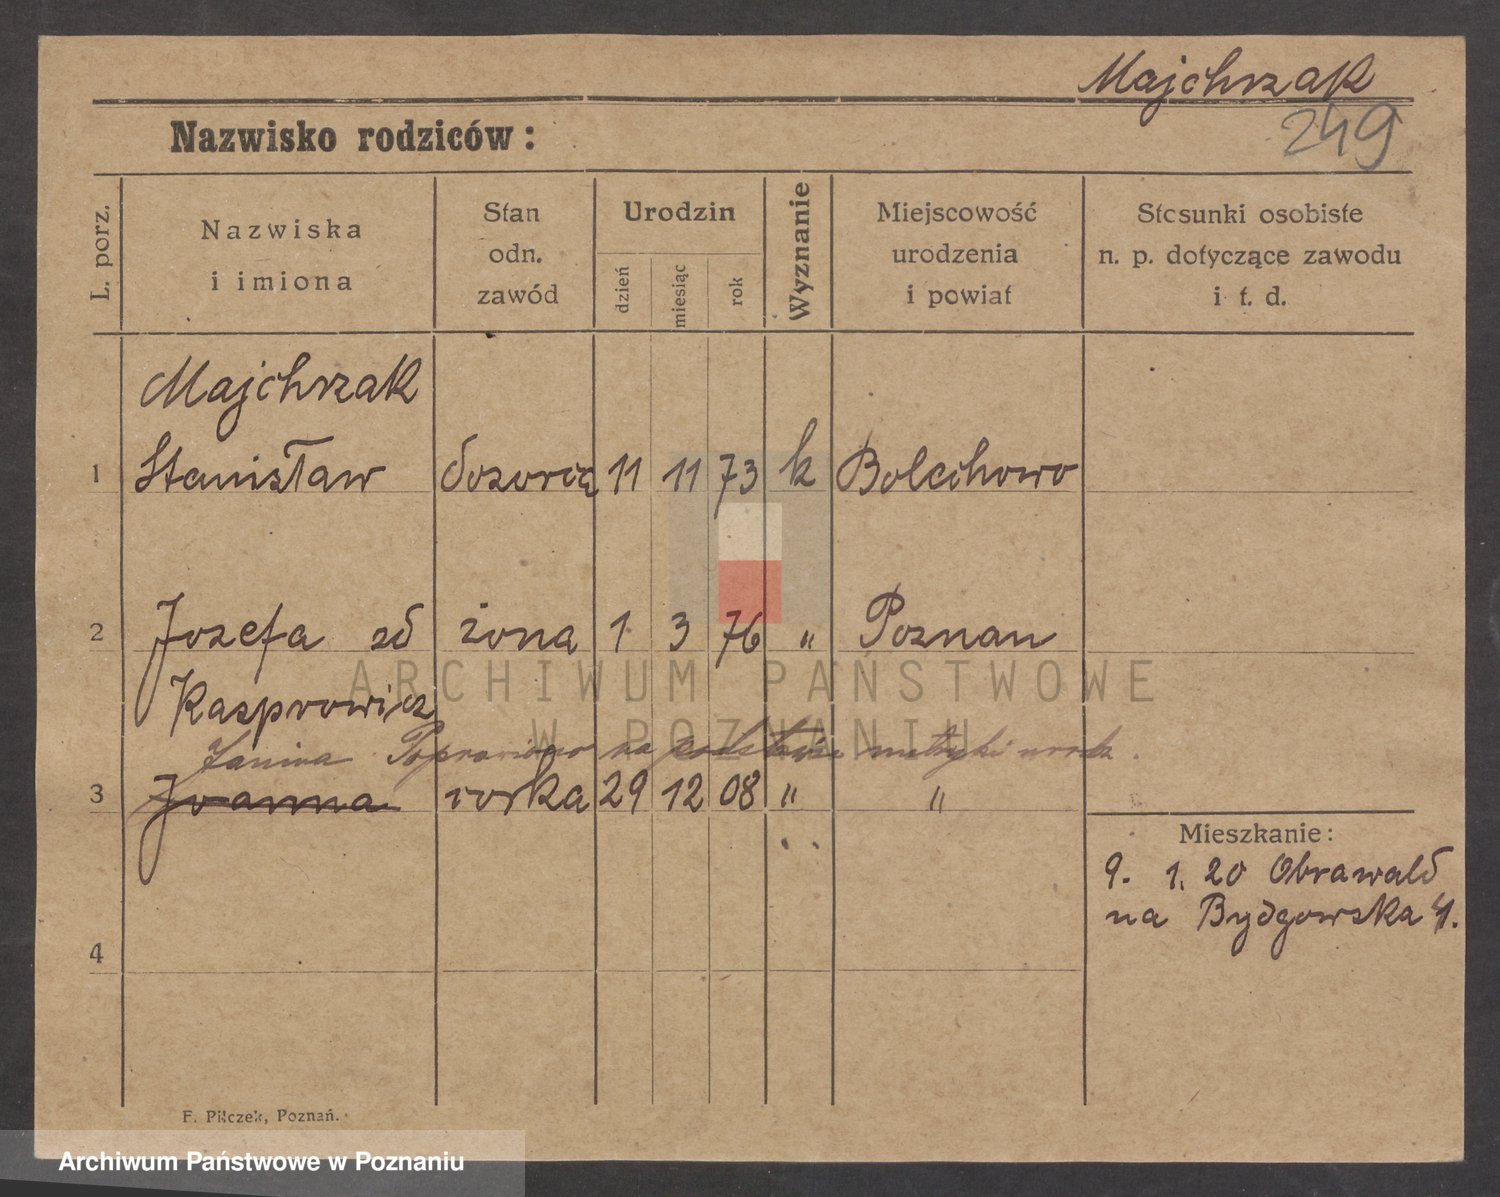 Majchrzak
249
Nazwisko rodziców:
L. porz.
Nazwiska
i imiona
Stan
odn.
zawód
Urodzin
dzień
miesiąc
rok
Wyznanie
Miejscowość
urodzenia
i powiat
Stosunki osobiste
n. p. dotyczące zawodu
i t. d.
Majchrzak
1 Stanisław dozorcą 11 11 73 k Bolechowo
2 Jozefa zd żona 1 3 76 " Poznan
Kasprowicz
Janina Poprawiono na podstawie metryki urodz.
3 Joanna corka 29 12 08 " "
Mieszkanie:
9. 1. 20 Obrawald
na Bydgowska 4.
4
F. Pilczek, Poznań.
ARCHIWUM PAŃSTWOWE
W POZNANIU
Archiwum Państwowe w Poznaniu